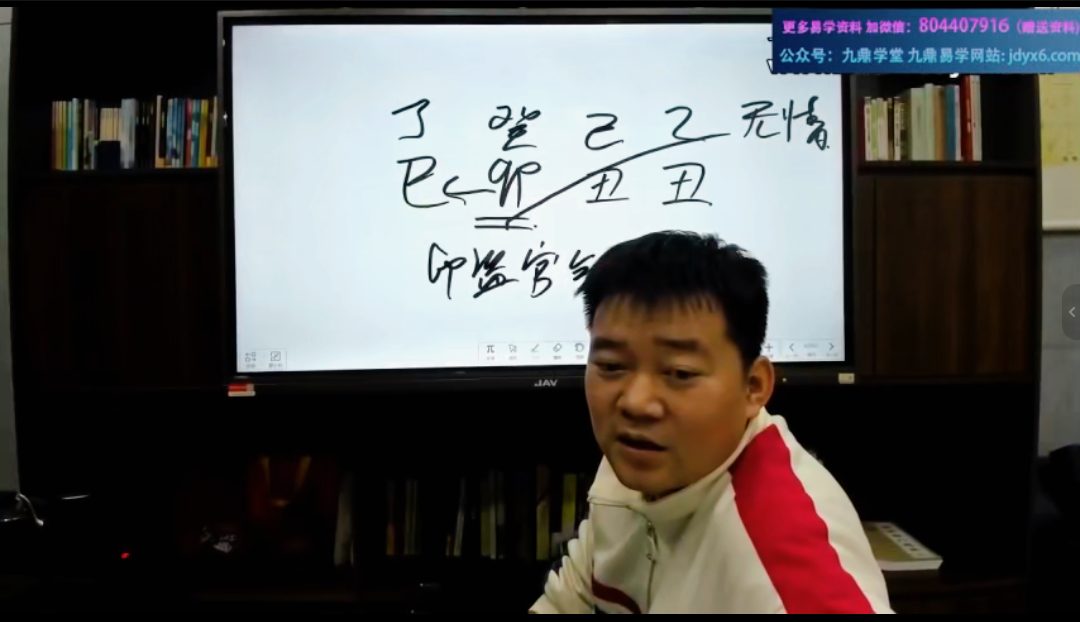 更多易学资料 加微信：804407916（赠送资料)
公众号：九鼎学堂 九鼎易学网站: jdyx6.com
丁 癸 己 乙 无情
巳 卯 丑 丑
印 监 官
JAV